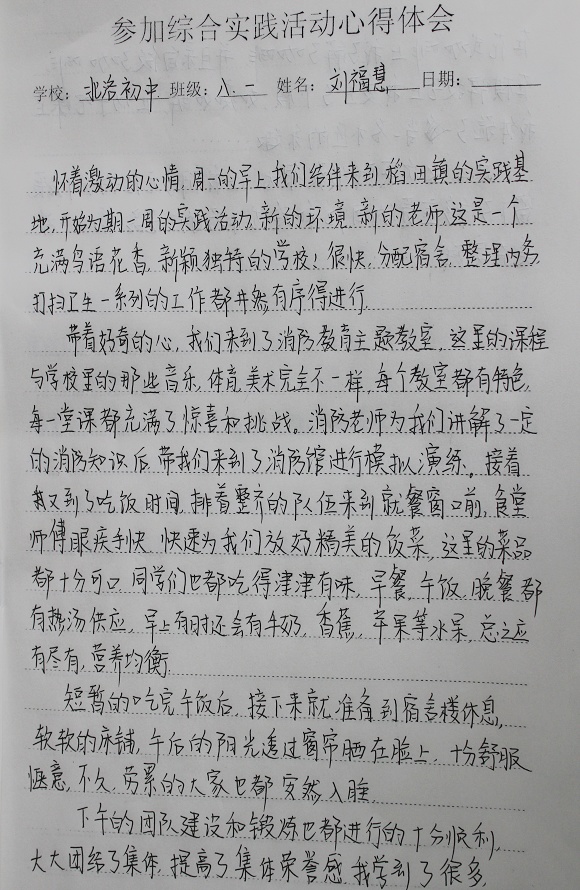 参加综合实践活动心得体会
学校：北洛初中 班级：八.一 姓名：刘福慧 日期：
怀着激动的心情，周一的早上我们结伴来到稻田镇的实践基
地，开始为期一周的实践活动，新的环境，新的老师，这是一个
充满鸟语花香，新颖独特的学校！很快，分配宿舍，整理内务，
打扫卫生一系列的工作都井然有序得进行.
带着好奇的心，我们来到了消防教育主题教室，这里的课程
与学校里的那些音乐，体育，美术完全不一样，每个教室都有特色，
每一堂课都充满了惊喜和挑战。消防老师为我们讲解了一定
的消防知识后，带我们来到了消防馆进行模拟演练。接着
我又到了吃饭时间，排着整齐的队伍来到就餐窗口前，食堂
师傅眼疾手快，快速为我们放好精美的饭菜，这里的菜品
都十分可口，同学们也都吃得津津有味，早餐，午饭，晚餐都
有热汤供应，早上有时还会有牛奶，香蕉，苹果等水果，总之应
有尽有，营养均衡.
短暂的吃完午饭后，接下来就准备到宿舍楼休息，
软软的床铺，午后的阳光透过窗帘晒在脸上，十分舒服
惬意，不久，劳累的大家也都安然入睡.
下午的团队建设和锻炼也都进行的十分顺利，
大大团结了集体，提高了集体荣誉感，我学到了很多，